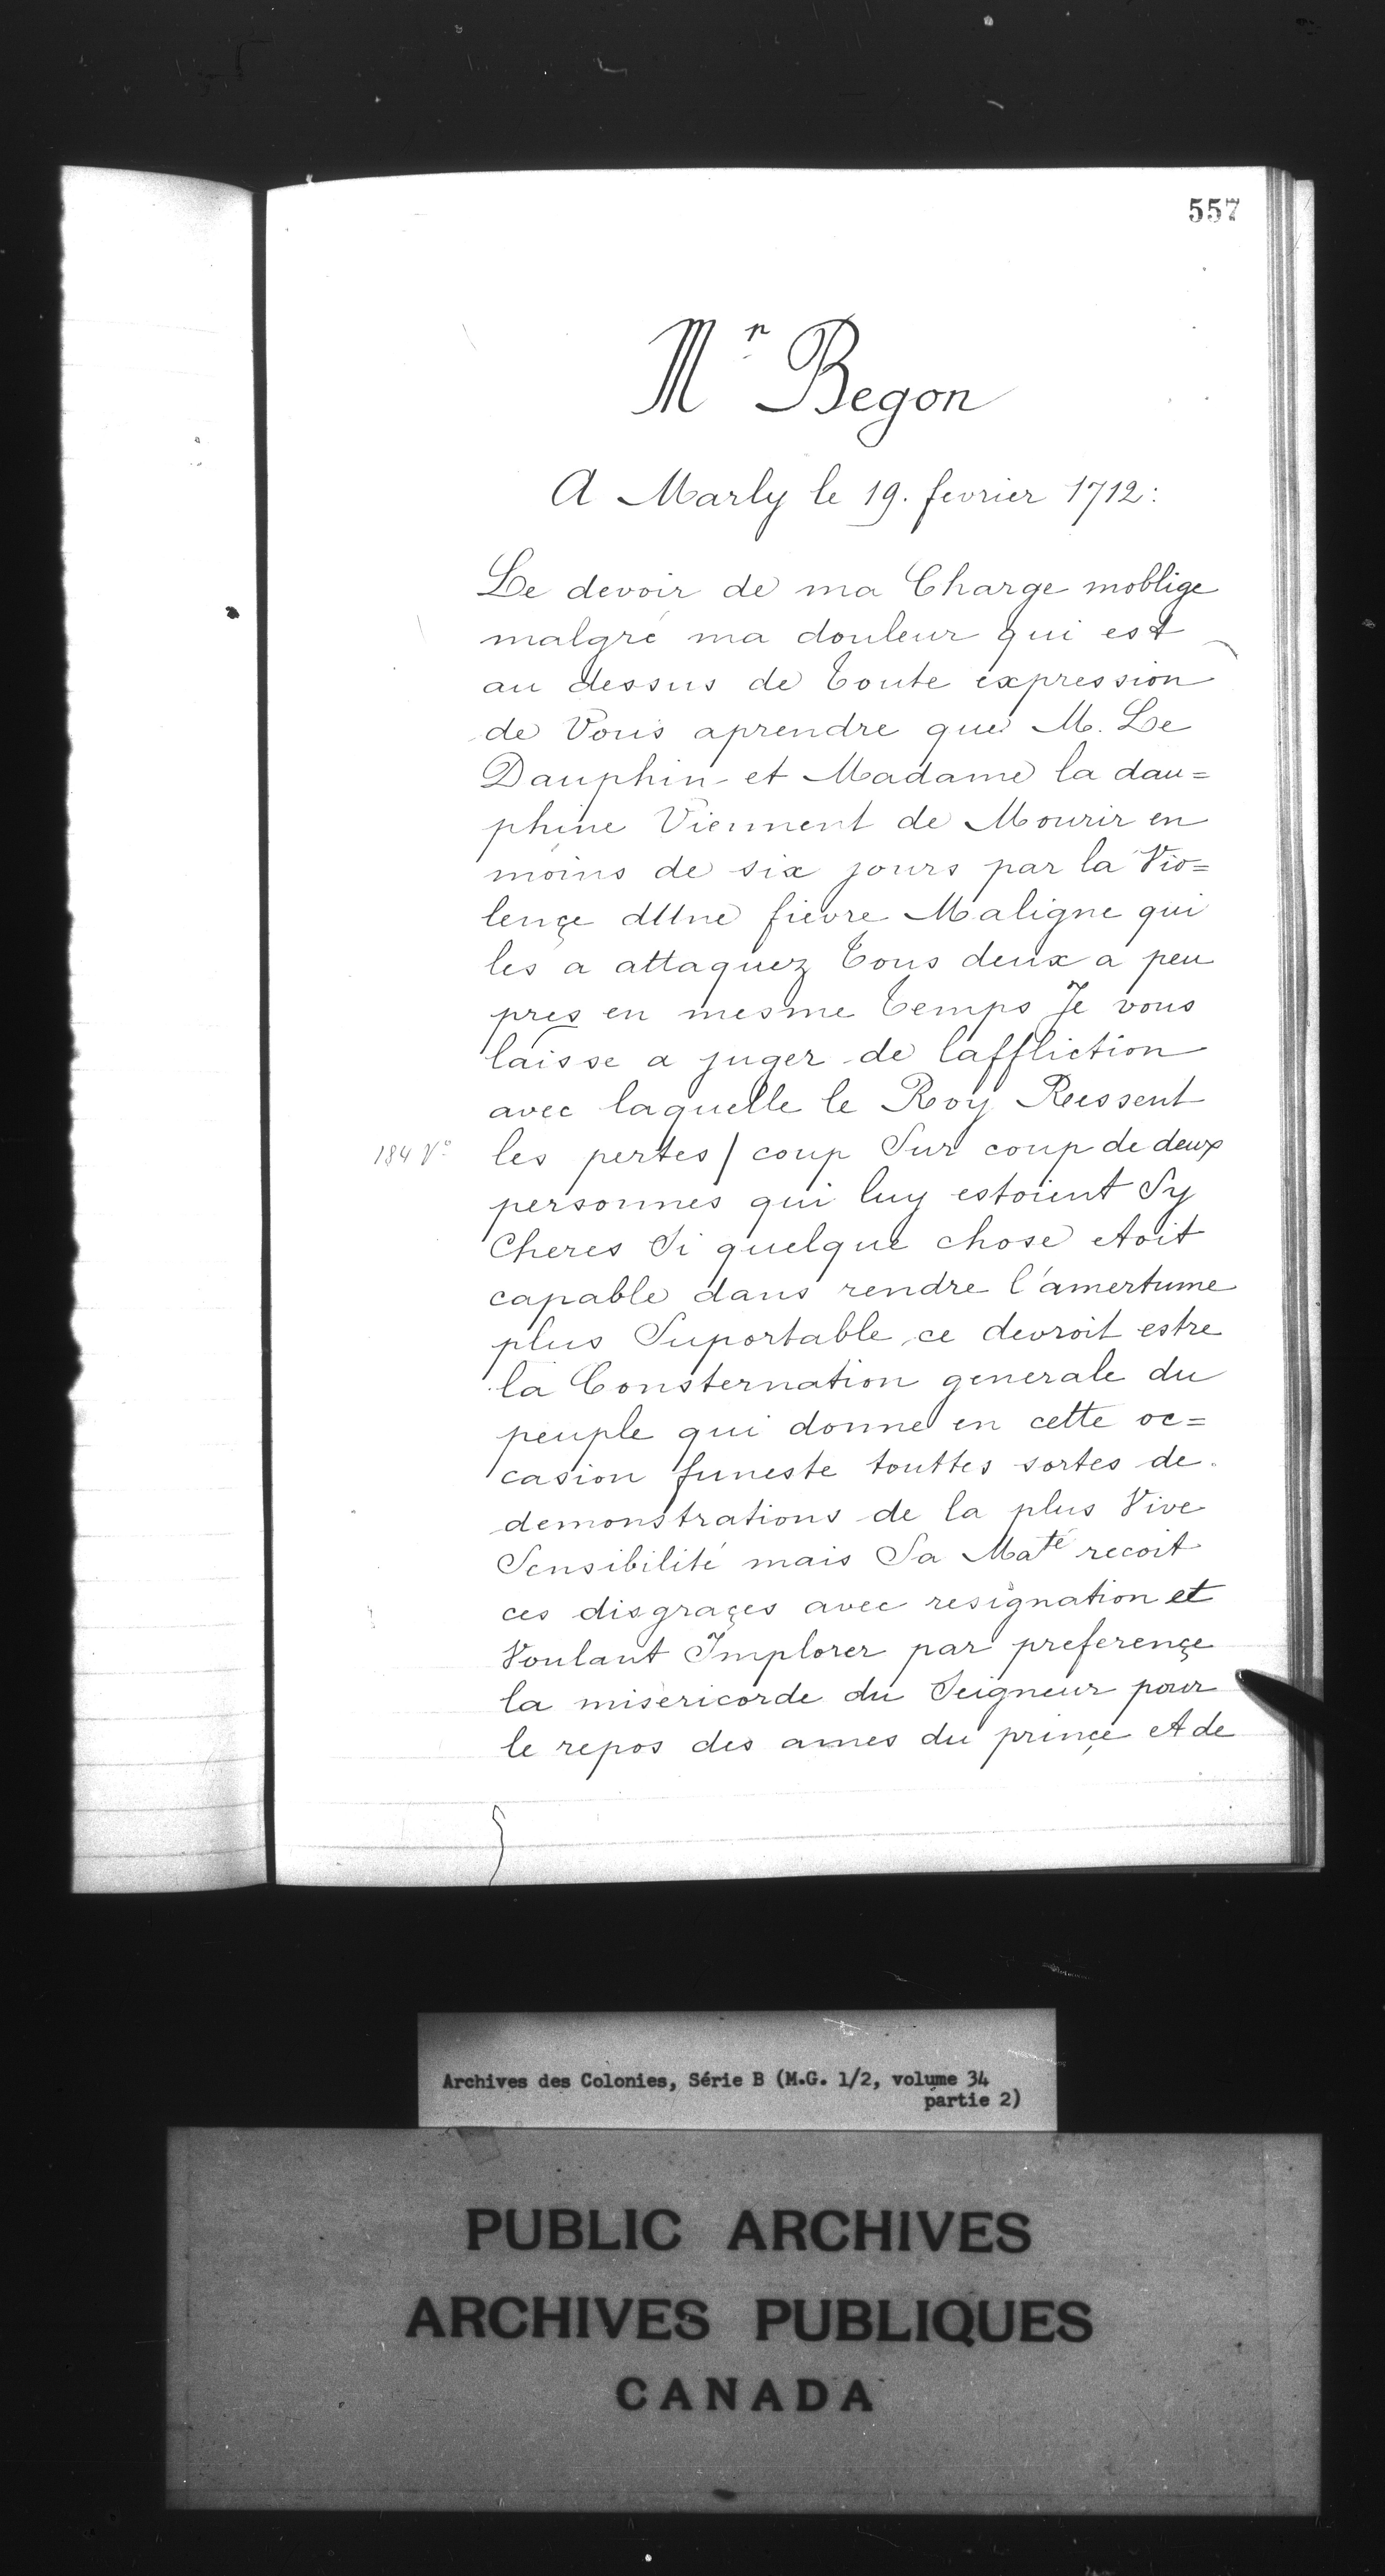 557
Mr Begon
A Marly le 19. fevrier 1712:
Le devoir de ma Charge moblige
malgré ma douleur qui est
au dessus de toute expression
de Vous aprendre que M. Le
Dauphin et Madame la dau=
phine Viennent de Mourir en
moins de six jours par la Vio=
lençe dUne fievre Maligne qui
les a attaquez tous deux a peu
pres en mesme temps Je vous
laisse a juger de laffliction
avec laquelle le Roy Ressent
184 Vº les pertes / coup Sur coup de deux
personnes qui luy estoient Sy
Cheres Si quelque chose etoit
capable dans rendre l'amertume
plus Suportable ce devroit estre
la Consternation generale du
peuple qui donne en cette oc=
casion funeste touttes sortes de
demonstrations de la plus Vive
Sensibilité mais Sa Maté recoit
ces disgraçes avec resignation et
Voulant Implorer par preferençe
la misericorde du Seigneur pour
le repos des ames du prinçe et de
Archives des Colonies, Série B (M.G. 1/2, volume 34
partie 2)
PUBLIC ARCHIVES
ARCHIVES PUBLIQUES
CANADA